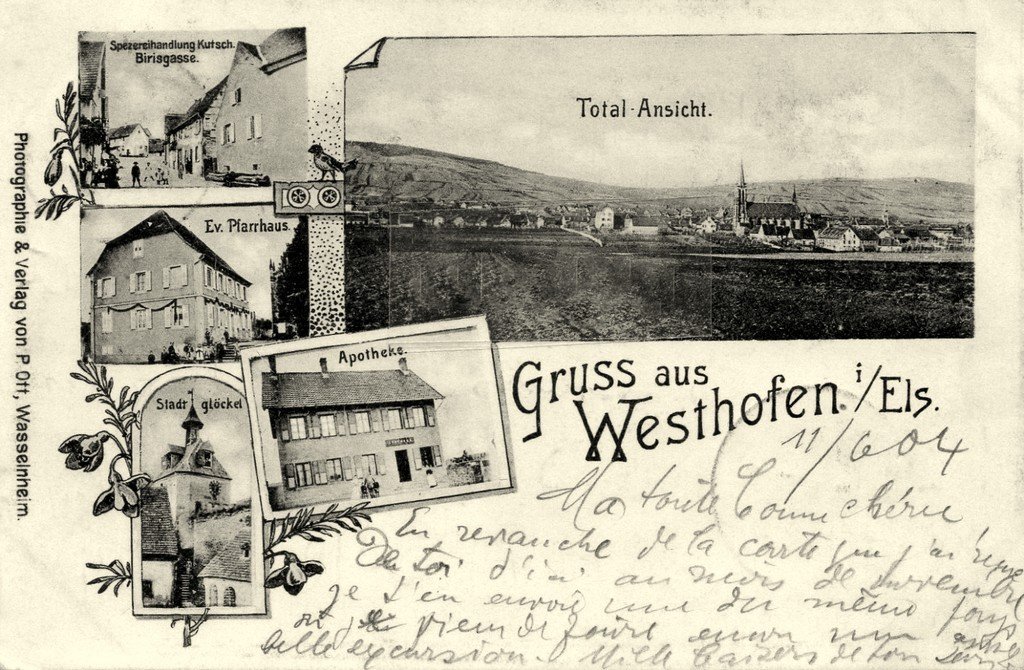 Spezereihandlung Kutsch.
Birisgasse.
Total-Ansicht.
Ev. Pfarrhaus.
Apotheke.
Stadtglöckel
Photographie & Verlag von P. Ott, Wasselnheim.
Gruss aus
Westhofen i/Els.
11/6 04
Ma toute bonne chérie
En revanche de la carte que j'ai reçue
de toi d'ici au mois de novembre
je t'en envoie une du même pays
où je viens de faire encore une
belle excursion. Mille baisers de ton